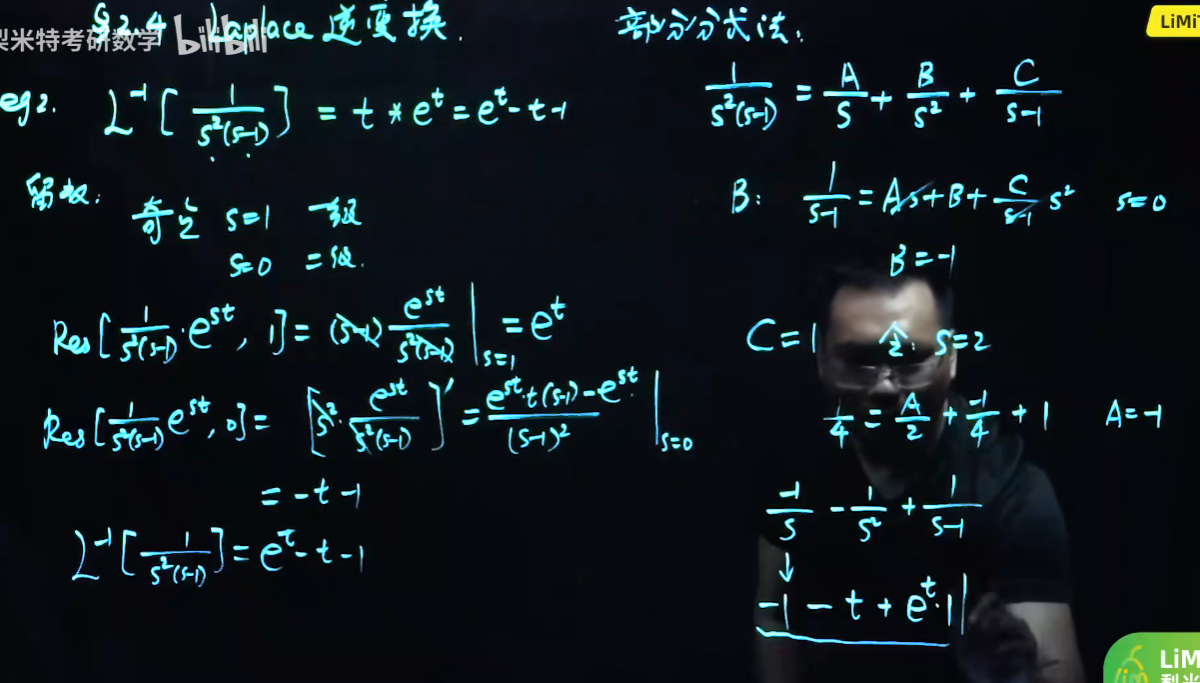 §2.4 Laplace 逆变换.
梨米特考研数学 bilibili
LiMiT
eg2. L⁻¹[1/(s²(s-1))] = t * eᵗ = eᵗ - t - 1
留数:
奇点 s=1 一级
s=0 二级.
Res[1/(s²(s-1))·eˢᵗ, 1] = (s-1) eˢᵗ/(s²(s-1)) |s=1 = eᵗ
Res[1/(s²(s-1)) eˢᵗ, 0] = [s²·eˢᵗ/(s²(s-1))]′ = (eˢᵗ·t(s-1) - eˢᵗ)/(s-1)² |s=0
= -t-1
L⁻¹[1/(s²(s-1))] = eᵗ - t - 1
部分分式法:
1/(s²(s-1)) = A/s + B/s² + C/(s-1)
B: 1/(s-1) = As + B + C/(s-1) s² s=0
B = -1
C = 1 令: s=2
1/4 = A/2 + -1/4 + 1 A=-1
-1/s - 1/s² + 1/(s-1)
↓
-1 - t + eᵗ·1
LiM